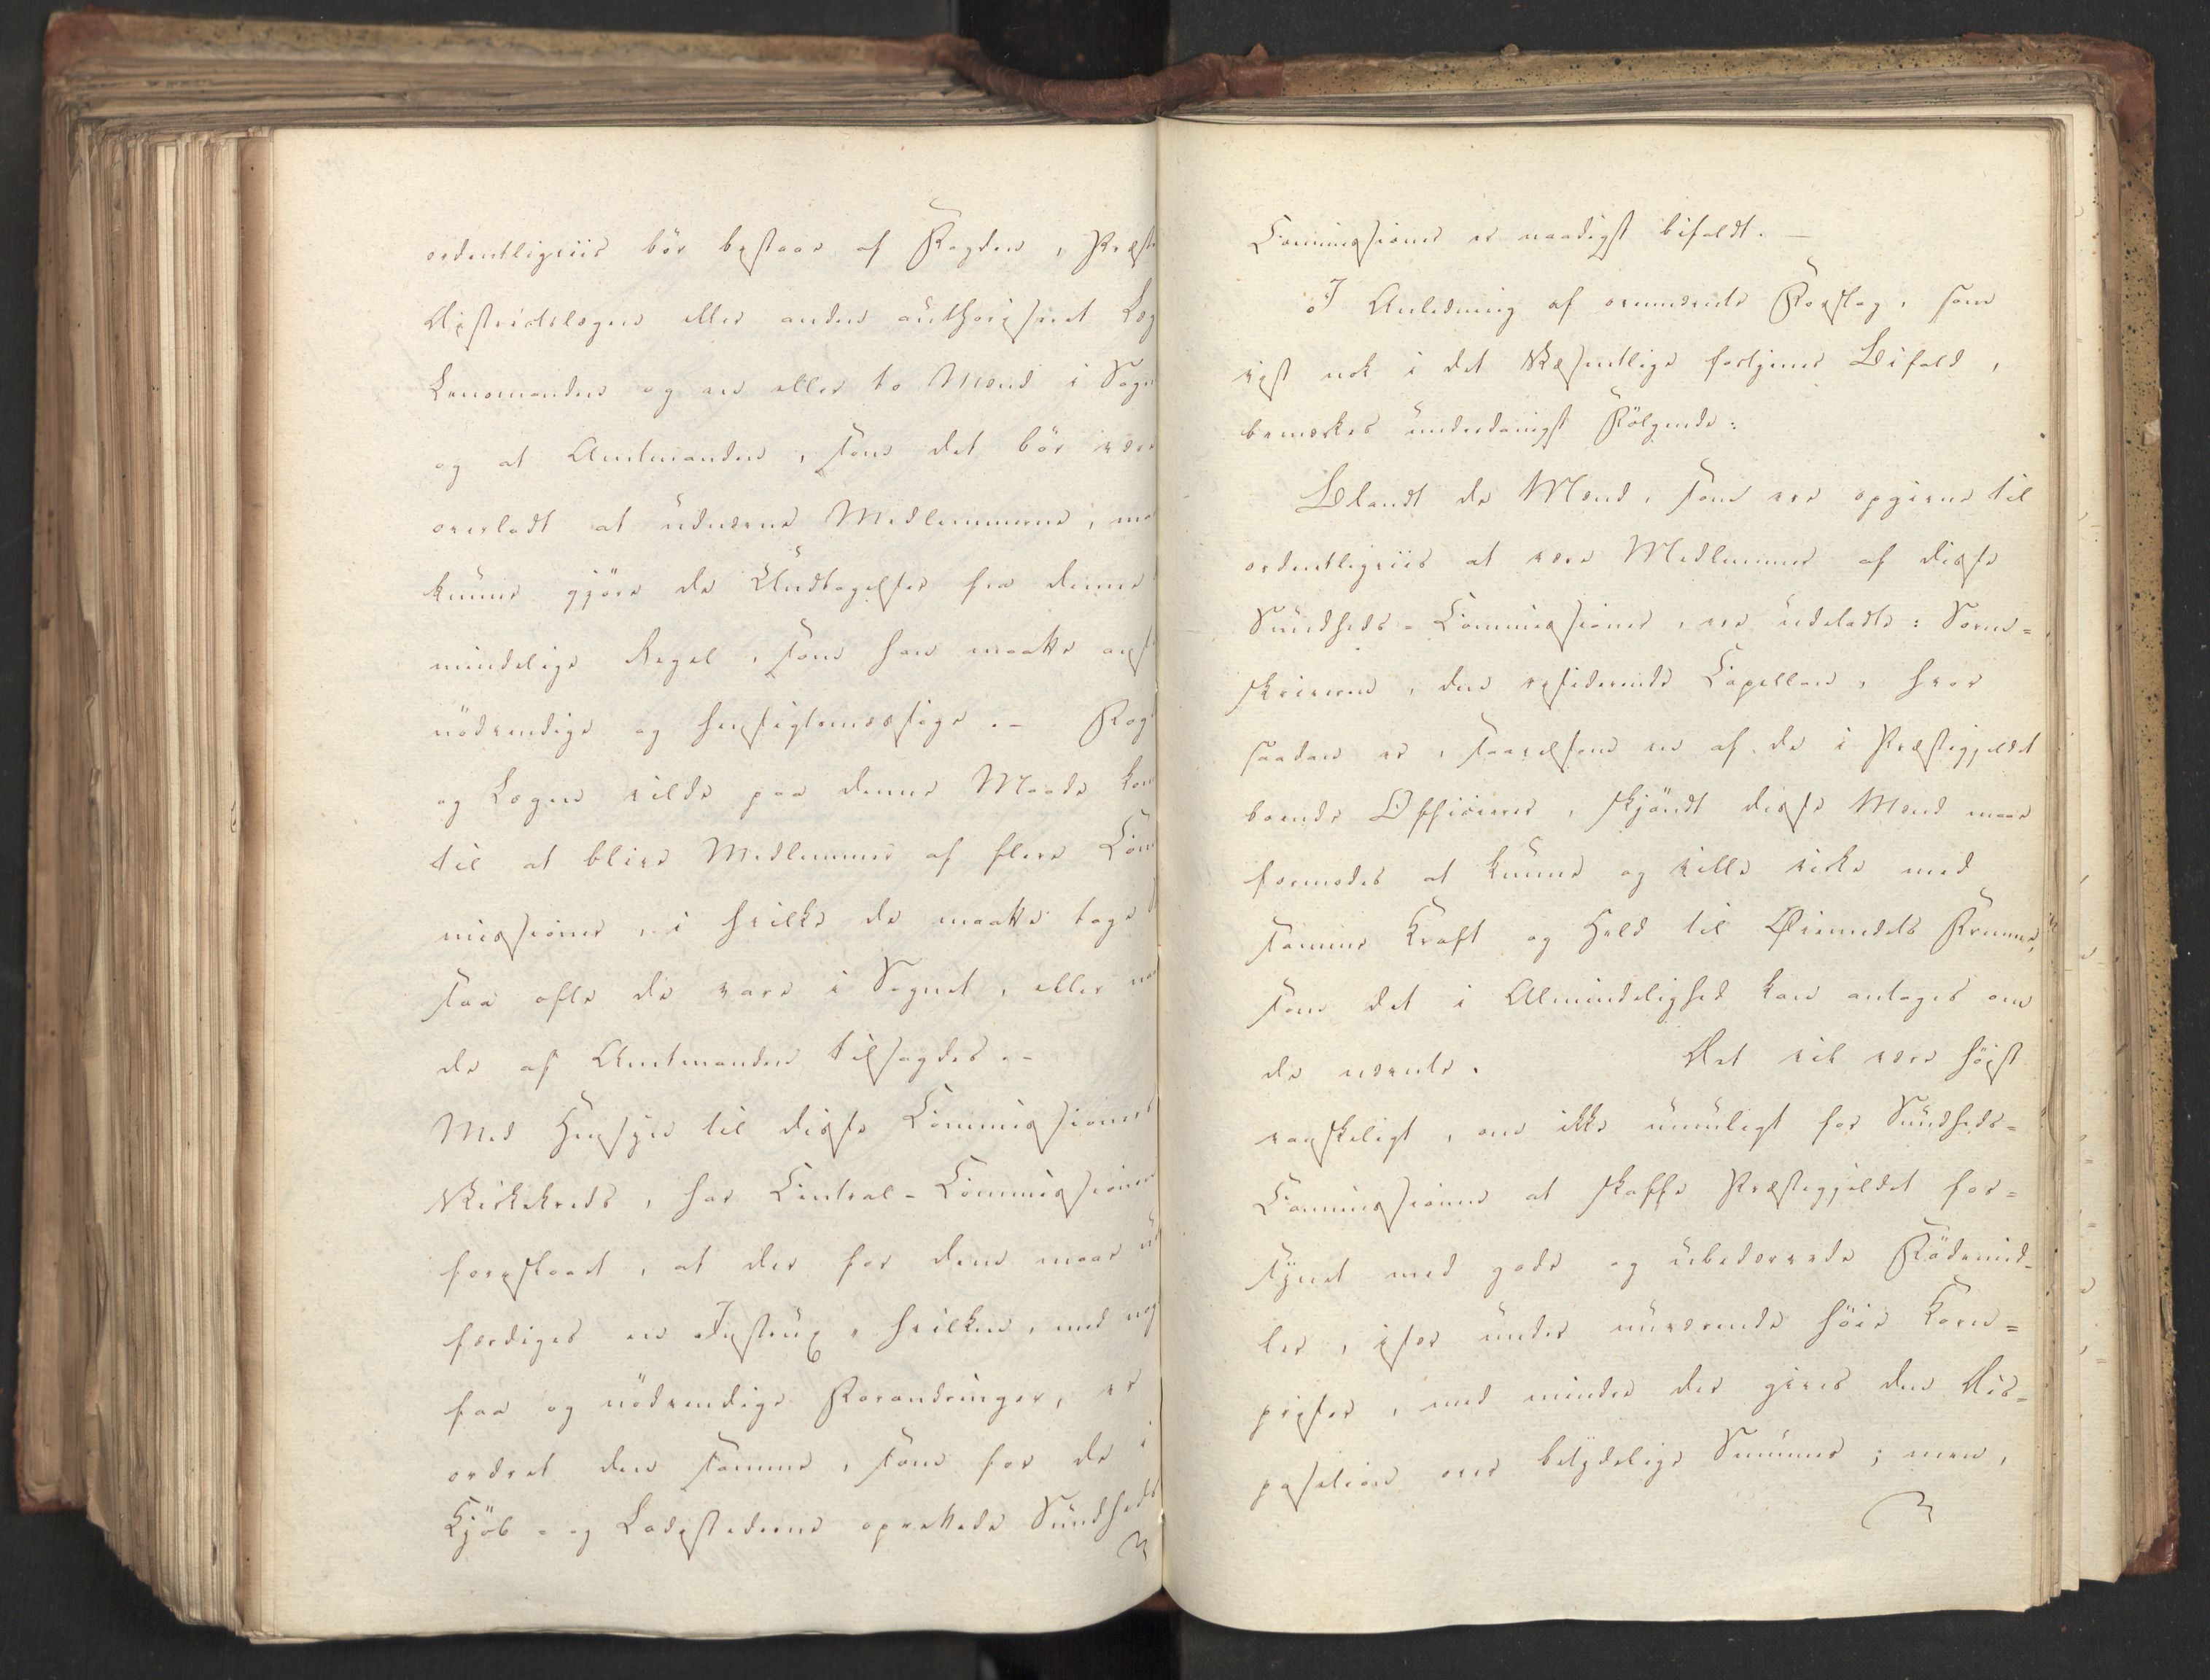 ordentligviis bör bestaae af Fogden, Præst
Districtslægen eller anden authoriseret Læg
Lensmanden og en eller to Mænd i Sogn
og at Amtmanden, som det bör være
overladt at udnævne Medlemmerne, maa
kunne gjöre de Undtagelser fra denne
mindelige Regel, som han maatte ans
nödvendige og hensigtsmæssige. – Fog
og Lægen vilde paa denne Maade kom
til at blive Medlemmer af flere Com
missioner, i hvilke de maatte tage
saa ofte de vare i Sognet, eller naa
de af Amtmanden tilsagdes. –
Med Hensyn til disse Commissioners
Virkekreds, har Central-Commissionen
foreslaaet, at der for dem maae ud
færdiges en Instrux, hvilken, med nog
faa og nödvendige Forandringer, er
ordret den samme, som for de i
Kjöb- og Ladestederne oprettede Sundheds
Commissioner er naadigst bifaldt. –
I Anledning af ovennævnte Forslag, som
vist nok i det Væsentlige fortjener Bifald,
bemærkes underdanigst Fölgende:
Blandt de Mænd, som ere opgivne til
ordentligviis at være Medlemmer af disse
Sundheds-Commissioner, ere udeladte: Soren=
skriveren, den residerende Capellan, hvor
saadan er, saavelsom en af de i Præstegjeldet
boende Officierer, skjöndt disse Mænd maae
formodes at kunne og ville virke med
samme Kraft og Held til Øiemedets Fremme,
som det i Almindelighed kan antages om
de nævnte. Det vil være höist
vanskeligt, om ikke umuligt for Sundheds=
Commissionerne at skaffe Præstegjeldet for=
synet med gode og ubedærvede Födemid=
ler, især under nuværende höie Korn=
priser, med mindre der gives den Dis=
position over betydelige Summer; men,